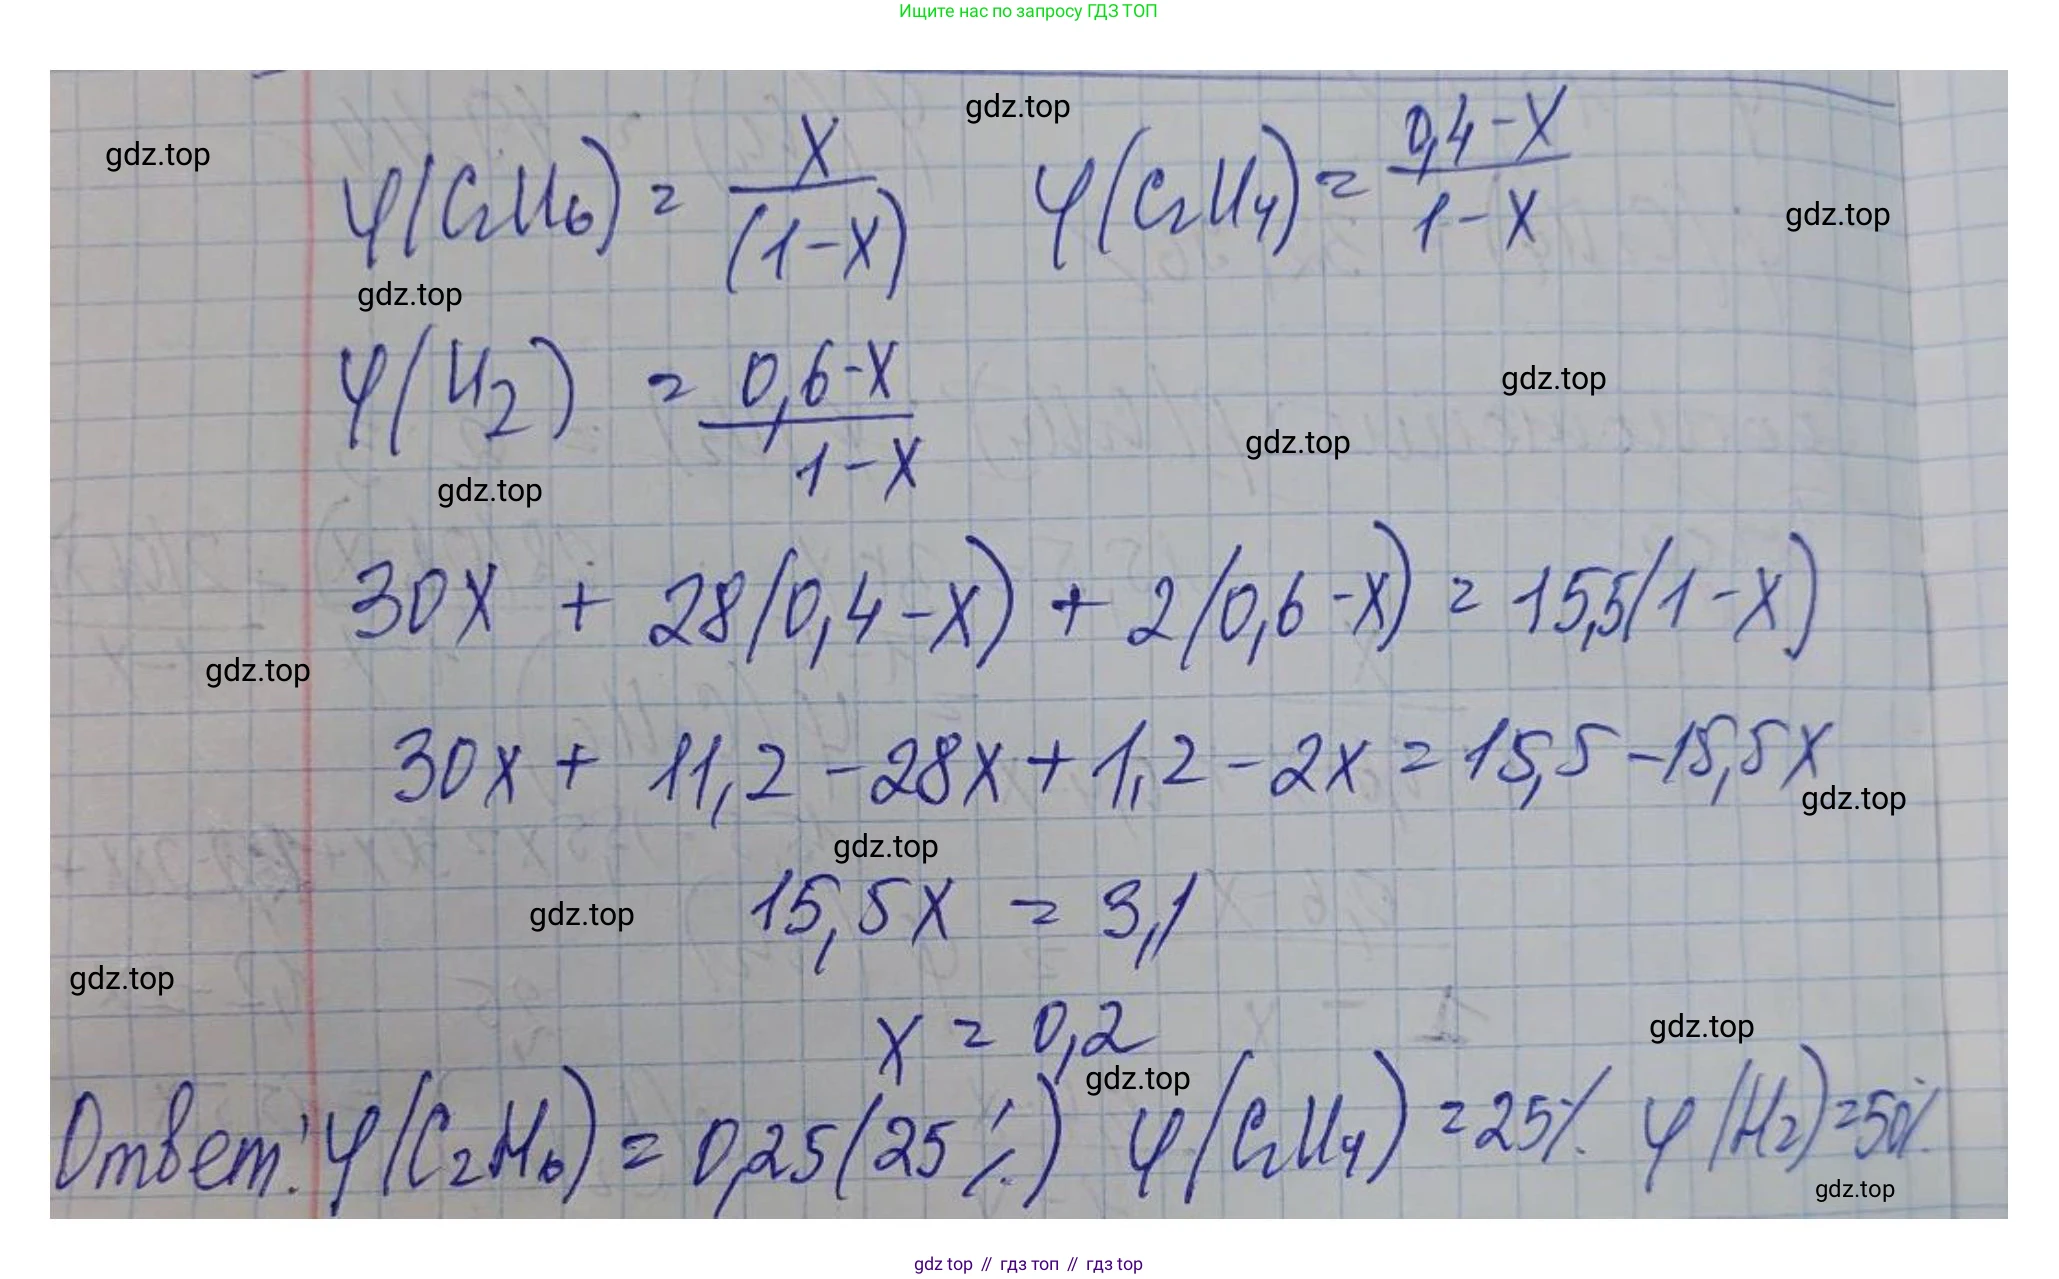 Ищите нас по запросу ГДЗ ТОП
gdz.top
gdz.top
φ(C₂H₆) = X/(1-X) φ(C₂H₄) = 0,4-X/1-X
gdz.top
gdz.top
φ(H₂) = 0,6-X/1-X
gdz.top
gdz.top
gdz.top
30X + 28(0,4-X) + 2(0,6-X) = 15,5(1-X)
gdz.top
30X + 11,2 - 28X + 1,2 - 2X = 15,5 - 15,5X
gdz.top
gdz.top
15,5X = 3,1
gdz.top
gdz.top
X = 0,2
gdz.top
gdz.top
Ответ: φ(C₂H₆) = 0,25(25%) φ(C₂H₄) = 25% φ(H₂) = 50%
gdz.top
gdz top // гдз топ // gdz top